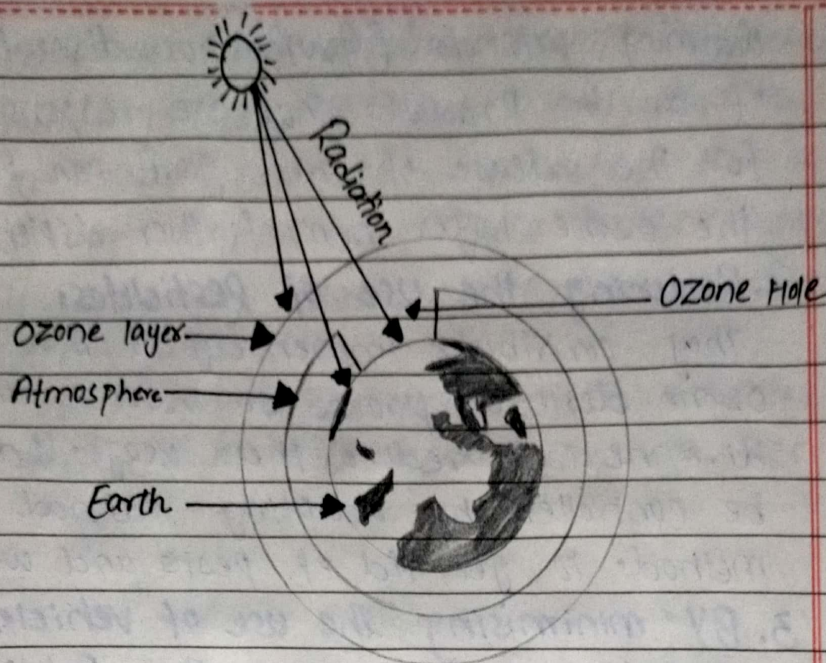 Radiation
Ozone Hole
Ozone layer
Atmosphere
Earth